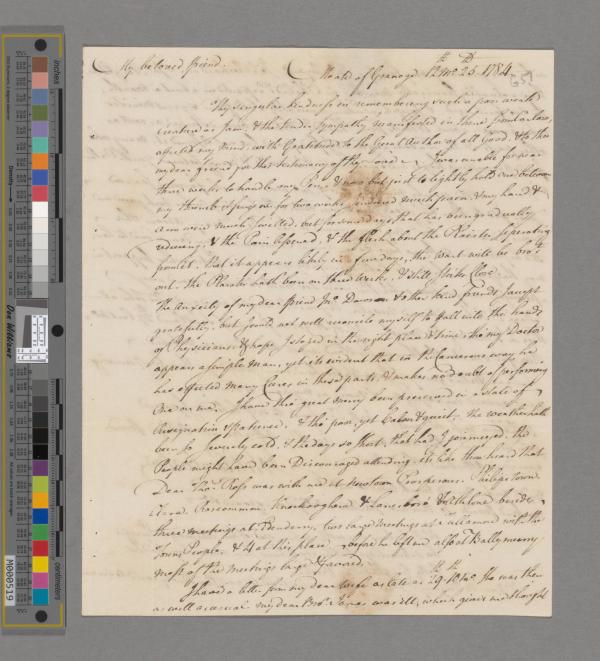 My beloved friend.
Moate of Granoge 12th Mo. 25th 1784
Thy singular kindness in remembering such a poor worth
creature as I am, & the tender sympathy manifested in these particulars,
affected my mind with Gratitude to the Great Author of all Good, & to thee
my dear friend for this testimony of thy I was unable for near
three weeks to handle my Pen, & now but just to lightly hold one between
my thumb & finger for two weeks I endured much pain, & my hand &
arm were much swelled, but for some days that has been gradually
reducing, & the Pain lessened, & the flesh about the Plaister seperating
from it. that it appears likely in a few days, the Wart will be bro't
out. the Plaister hath been on three weeks, & still sticks Close
The Anxiety of my dear friend Jno. Dawson & other kind friends I accept
gratefully, but could not well reconcile myself to fall into the hands
of Physicians, & hope I stayed in the right place & time, tho' my Doctor
appears a simple man, yet its evident that in the Cancerous way he
has effected many Cures in these parts, & makes no doubt of performing
One on me. I have thro' great mercy been preserved in a state of
Resignation & Patience, & tho' poor, yet Calm & quiet, the weather hath
been so severely cold, & the days so short, that had I journeyed, the
People might have been Discouraged attending. its like thou heard that
Dear Thos. Ross was with me at Newtown Prosperous, Philipstown
Ticroa Roscommon Knockcroghery & Lanesboro' & Athlone beside
three meetings at Edenderry, two large meetings at Tullamore with the
Towns People, & 4 at this place, before he left and also at Ballymurry
most of the meetings large & favored.
I have a letter from my dear wife as late as 29th 10th Mo. She was then
as well as usual my dear Bro. James was ill, which gave me thought
inches
centimeters
Don Williams
M000519